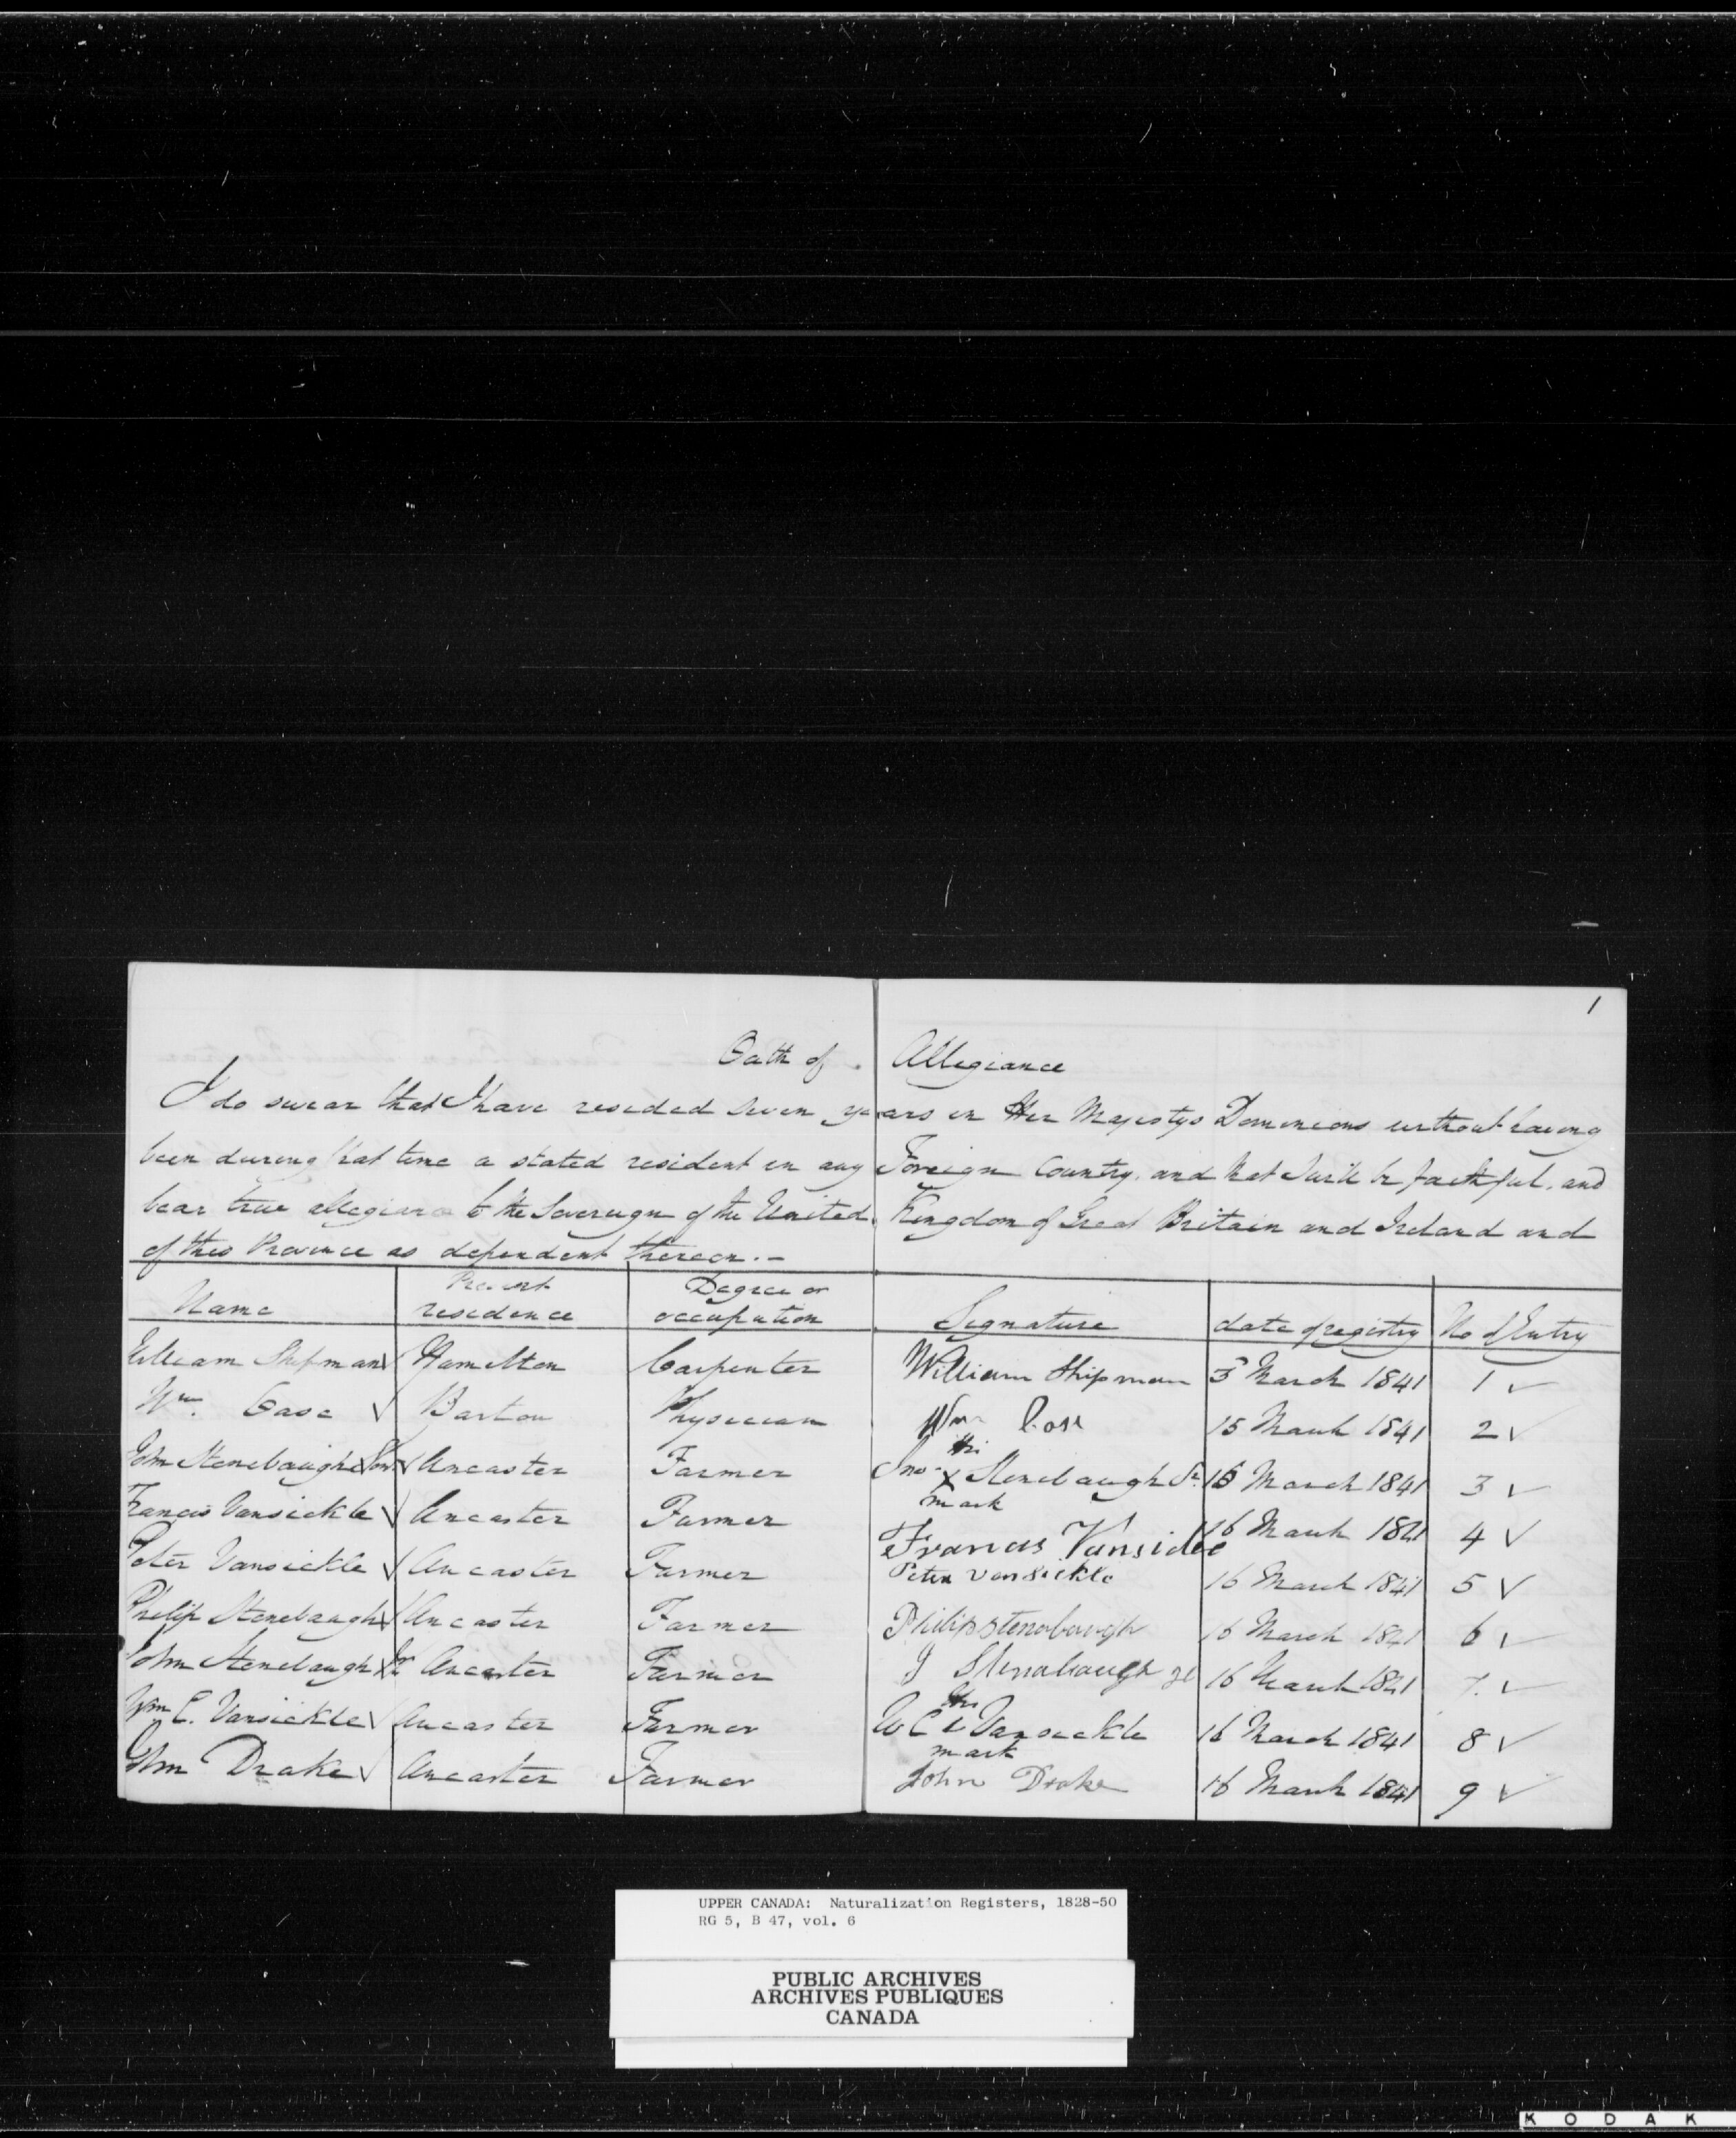 1
Oath of Allegiance
I do swear that I have resided seven years in Her Majestys Dominions without having
been during that time a stated resident in any Foreign Country, and that I will be faithful, and
bear true allegiance to the Sovereign of the United Kingdom of Great Britain and Ireland and
of this Province as dependent thereon.-
Name Present residence Degree or occupation Signature date of registry No of Entry
William Shipman Hamilton Carpenter William Shipman 3 March 1841 1 ✓
Wm. Case ✓ Barton Physician Wm Case 15 March 1841 2 ✓
John Stenebaugh Senr ✓ Ancaster Farmer Jno. his X mark Stenebaugh Sr. 16 March 1841 3 ✓
Francis Vansickle ✓ Ancaster Farmer Francis Vansicle 16 March 1841 4 ✓
Peter Vansickle ✓ Ancaster Farmer Peter Vansickle 16 March 1841 5 ✓
Philip Stenebaugh ✓ Ancaster Farmer Philip Stenobaugh 16 March 1841 6 ✓
John Stenebaugh Jr Ancaster Farmer J Stenabaugh 16 March 1841 7. ✓
Wm C. Vansickle ✓ Ancaster Farmer W C his mark Vansickle 16 March 1841 8 ✓
John Drake ✓ Ancaster Farmer John Drake 16 March 1841 9 ✓
UPPER CANADA: Naturalization Registers, 1828-50
RG 5, B 47, vol. 6
PUBLIC ARCHIVES
ARCHIVES PUBLIQUES
CANADA
KODAK